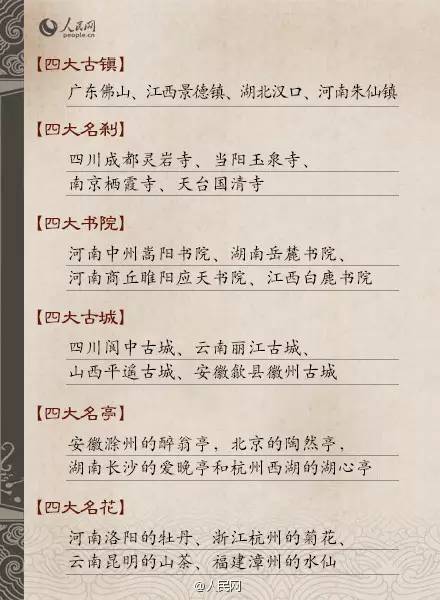 人民网
people.cn
【四大古镇】
广东佛山、江西景德镇、湖北汉口、河南朱仙镇
【四大名刹】
四川成都灵岩寺、当阳玉泉寺、
南京栖霞寺、天台国清寺
【四大书院】
河南中州嵩阳书院、湖南岳麓书院、
河南商丘睢阳应天书院、江西白鹿书院
【四大古城】
四川阆中古城、云南丽江古城、
山西平遥古城、安徽歙县徽州古城
【四大名亭】
安徽滁州的醉翁亭，北京的陶然亭，
湖南长沙的爱晚亭和杭州西湖的湖心亭
【四大名花】
河南洛阳的牡丹、浙江杭州的菊花、
云南昆明的山茶、福建漳州的水仙
@人民网